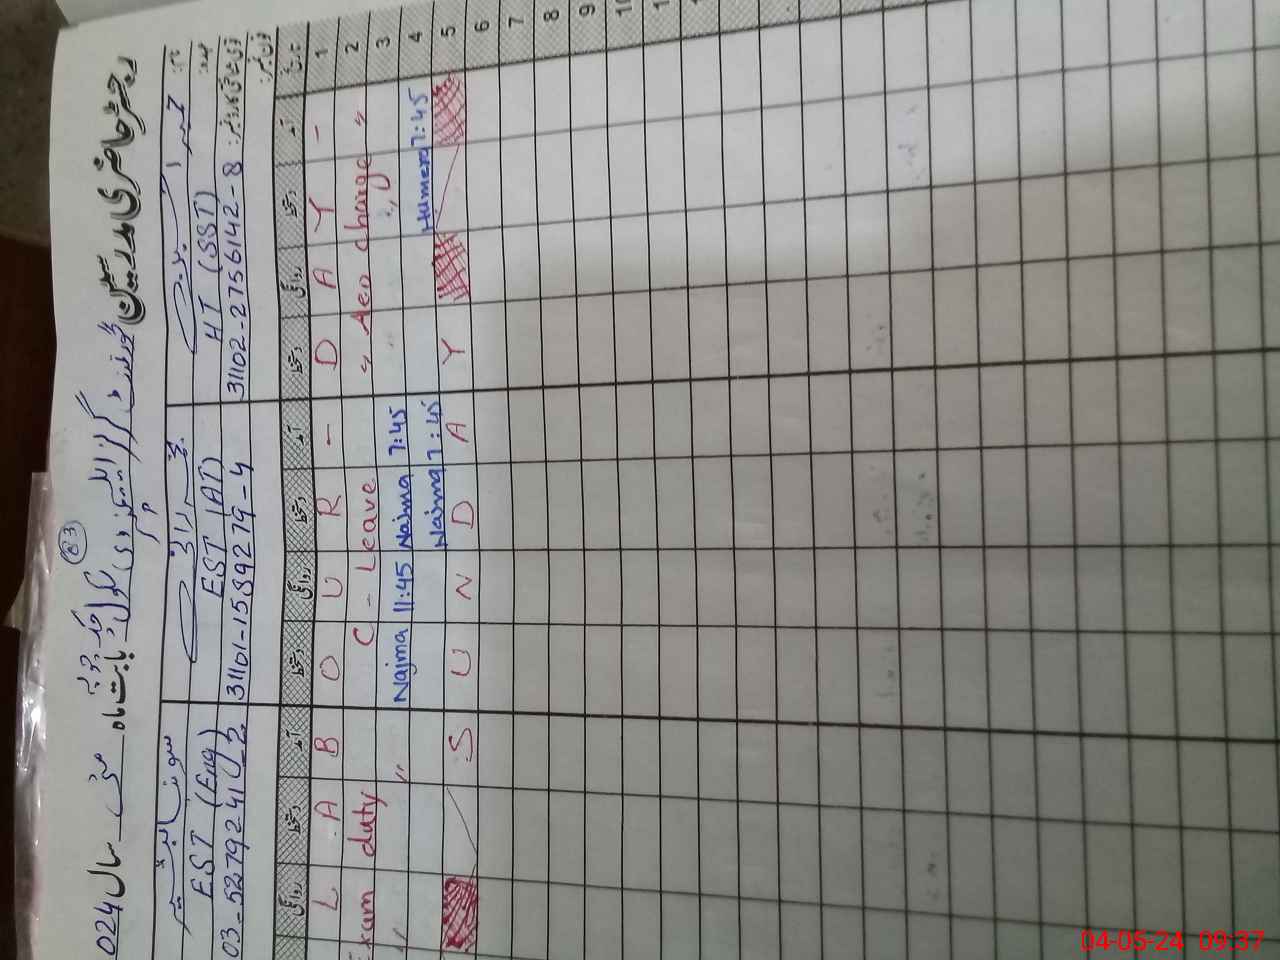 رجسٹر حاضری مدرسین گورنمنٹ گرلز ایلیمنٹری سکول بابت ماہ مئی سال 024
83
نام:
EST (Eng) EST (AT) HT (SST) عہدہ:
03-5279241-2 31101-1589279-4 31102-2756142-8
روانگی دستخط آمد دستخط روانگی دستخط آمد دستخط روانگی دستخط آمد تاریخ
L A B O U R - D A Y - 1
xam duty C - Leave " Aeo charge " 2
" " " 3
Najma 11:45 Najma 7:45 Humera 7:45 4
Najma 7:45
S U N D A Y 5
6
7
8
9
10
04-05-24 09:37